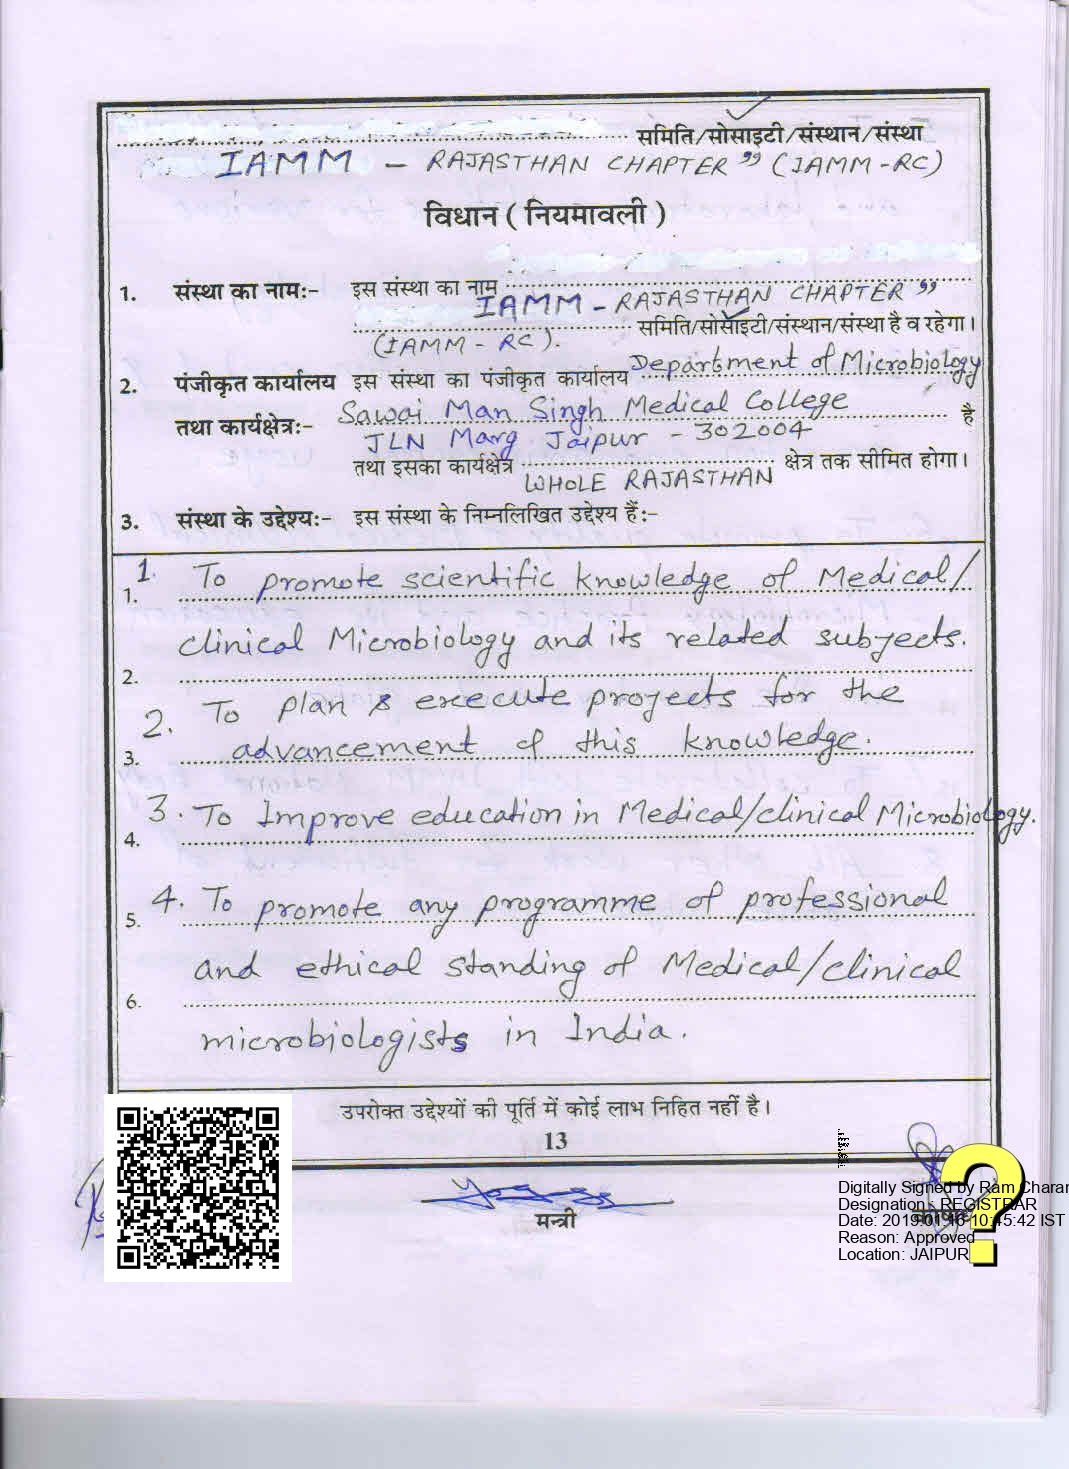 समिति/सोसाइटी/संस्थान/संस्था
IAMM - RAJASTHAN CHAPTER" (IAMM-RC)
विधान ( नियमावली )
1. संस्था का नामः- इस संस्था का नाम
IAMM - RAJASTHAN CHAPTER"
समिति/सोसाइटी/संस्थान/संस्था है व रहेगा।
(IAMM - RC).
2. पंजीकृत कार्यालय इस संस्था का पंजीकृत कार्यालय Department of Microbiology
तथा कार्यक्षेत्रः- Sawai Man Singh Medical College है
JLN Marg Jaipur - 302004
तथा इसका कार्यक्षेत्र क्षेत्र तक सीमित होगा।
WHOLE RAJASTHAN
3. संस्था के उद्देश्यः- इस संस्था के निम्नलिखित उद्देश्य हैं:-
1. To promote scientific knowledge of Medical/
1.
clinical Microbiology and its related subjects.
2.
2. To plan & execute projects for the
3. advancement of this knowledge.
3. To Improve education in Medical/clinical Microbiology.
4.
4. To promote any programme of professional
5.
and ethical standing of Medical/clinical
6.
microbiologists in India.
उपरोक्त उद्देश्यों की पूर्ति में कोई लाभ निहित नहीं है।
13
मन्त्री
Digitally Signed by Ram Charan
Designation : REGISTRAR
Date: 2019.01.16 10:45:42 IST
Reason: Approved
Location: JAIPUR